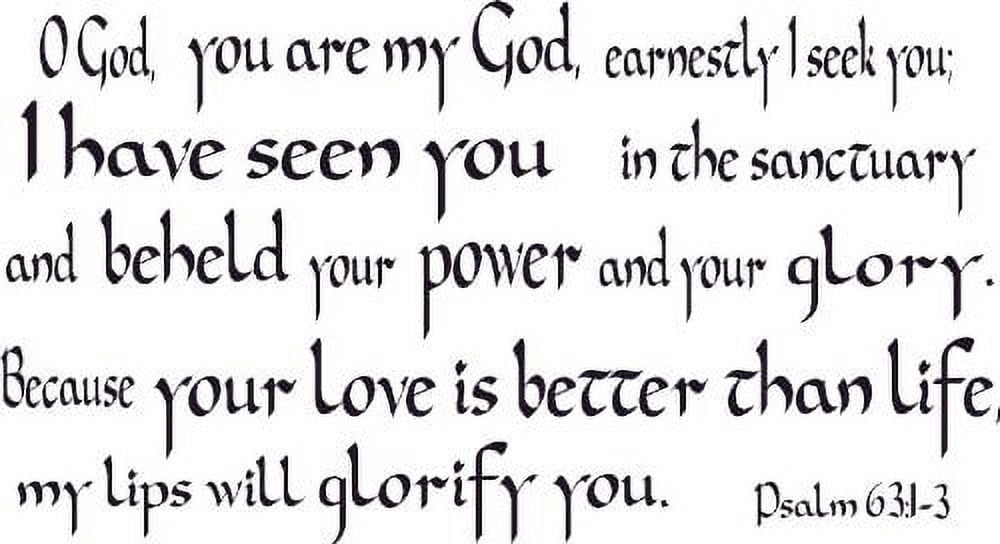 O God, you are my God, earnestly I seek you;
I have seen you in the sanctuary
and beheld your power and your glory.
Because your love is better than life,
my lips will glorify you. Psalm 63:1-3